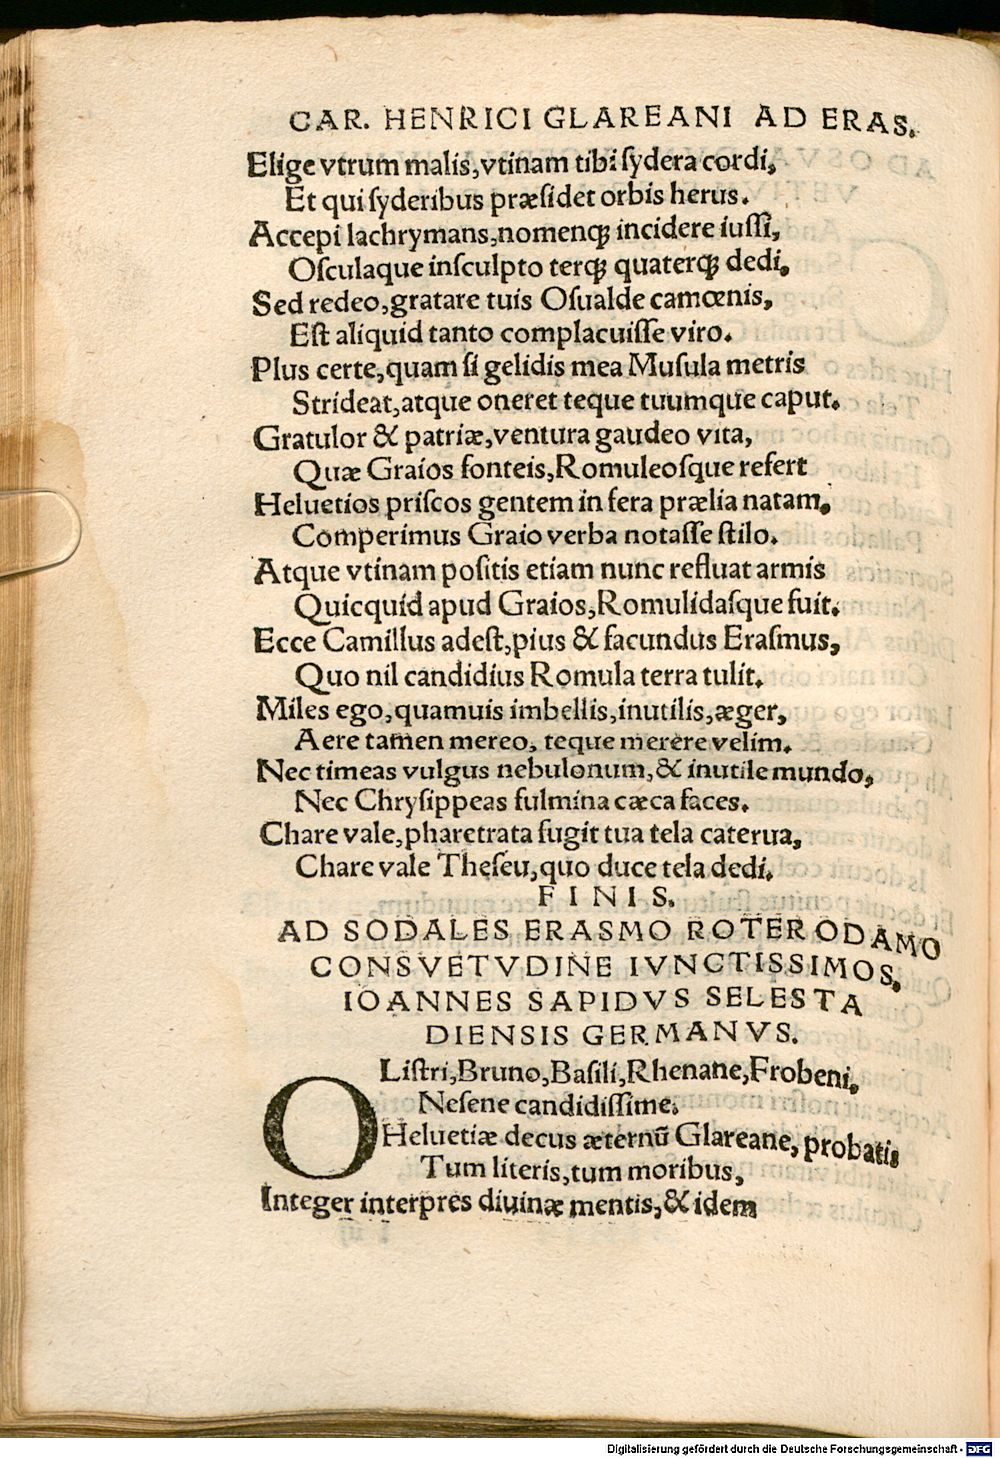 CAR. HENRICI GLAREANI AD ERAS.
Elige vtrum malis, vtinam tibi sydera cordi,
Et qui syderibus præsidet orbis herus.
Accepi lachrymans, nomenq; incidere iussi,
Osculaque insculpto terq; quaterq; dedi.
Sed redeo, gratare tuis Osualde camœnis,
Est aliquid tanto complacuisse viro.
Plus certe, quam si gelidis mea Musula metris
Strideat, atque oneret teque tuumque caput.
Gratulor & patriæ, ventura gaudeo vita,
Quæ Graios fonteis, Romuleosque refert
Heluetios priscos gentem in fera prælia natam,
Comperimus Graio verba notasse stilo.
Atque vtinam positis etiam nunc refluat armis
Quicquid apud Graios, Romulidasque fuit.
Ecce Camillus adest, pius & facundus Erasmus,
Quo nil candidius Romula terra tulit.
Miles ego, quamuis imbellis, inutilis, æger,
Aere tamen mereo, teque merere velim.
Nec timeas vulgus nebulonum, & inutile mundo,
Nec Chrysippeas fulmina cæca faces.
Chare vale, pharetrata fugit tua tela caterua,
Chare vale Theseu, quo duce tela dedi.
FINIS.
AD SODALES ERASMO ROTERODAMO
CONSVETVDINE IVNCTISSIMOS,
IOANNES SAPIDVS SELESTA
DIENSIS GERMANVS.
O Listri, Bruno, Basili, Rhenane, Frobeni,
Nesene candidissime.
Heluetiæ decus æternū Glareane, probatis
Tum literis, tum moribus,
Integer interpres diuinæ mentis, & idem
Digitalisierung gefördert durch die Deutsche Forschungsgemeinschaft - DFG